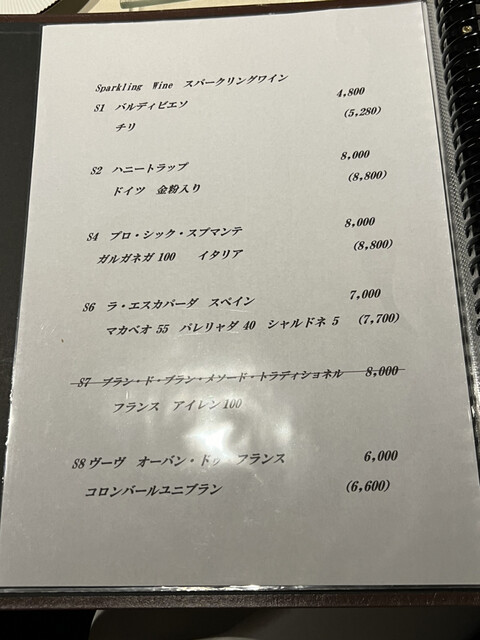 Sparkling Wine スパークリングワイン
S1 バルディビエソ 4,800
チリ (5,280)
S2 ハニートラップ 8,000
ドイツ 金粉入り (8,800)
S4 プロ・シック・スプマンテ 8,000
ガルガネガ 100 イタリア (8,800)
S6 ラ・エスカパーダ スペイン 7,000
マカベオ 55 パレリャダ 40 シャルドネ 5 (7,700)
S7 ブラン・ド・ブラン・メソード・トラディショネル 8,000
フランス アイレン100
S8 ヴーヴ オーバン・ドゥ フランス 6,000
コロンバールユニブラン (6,600)